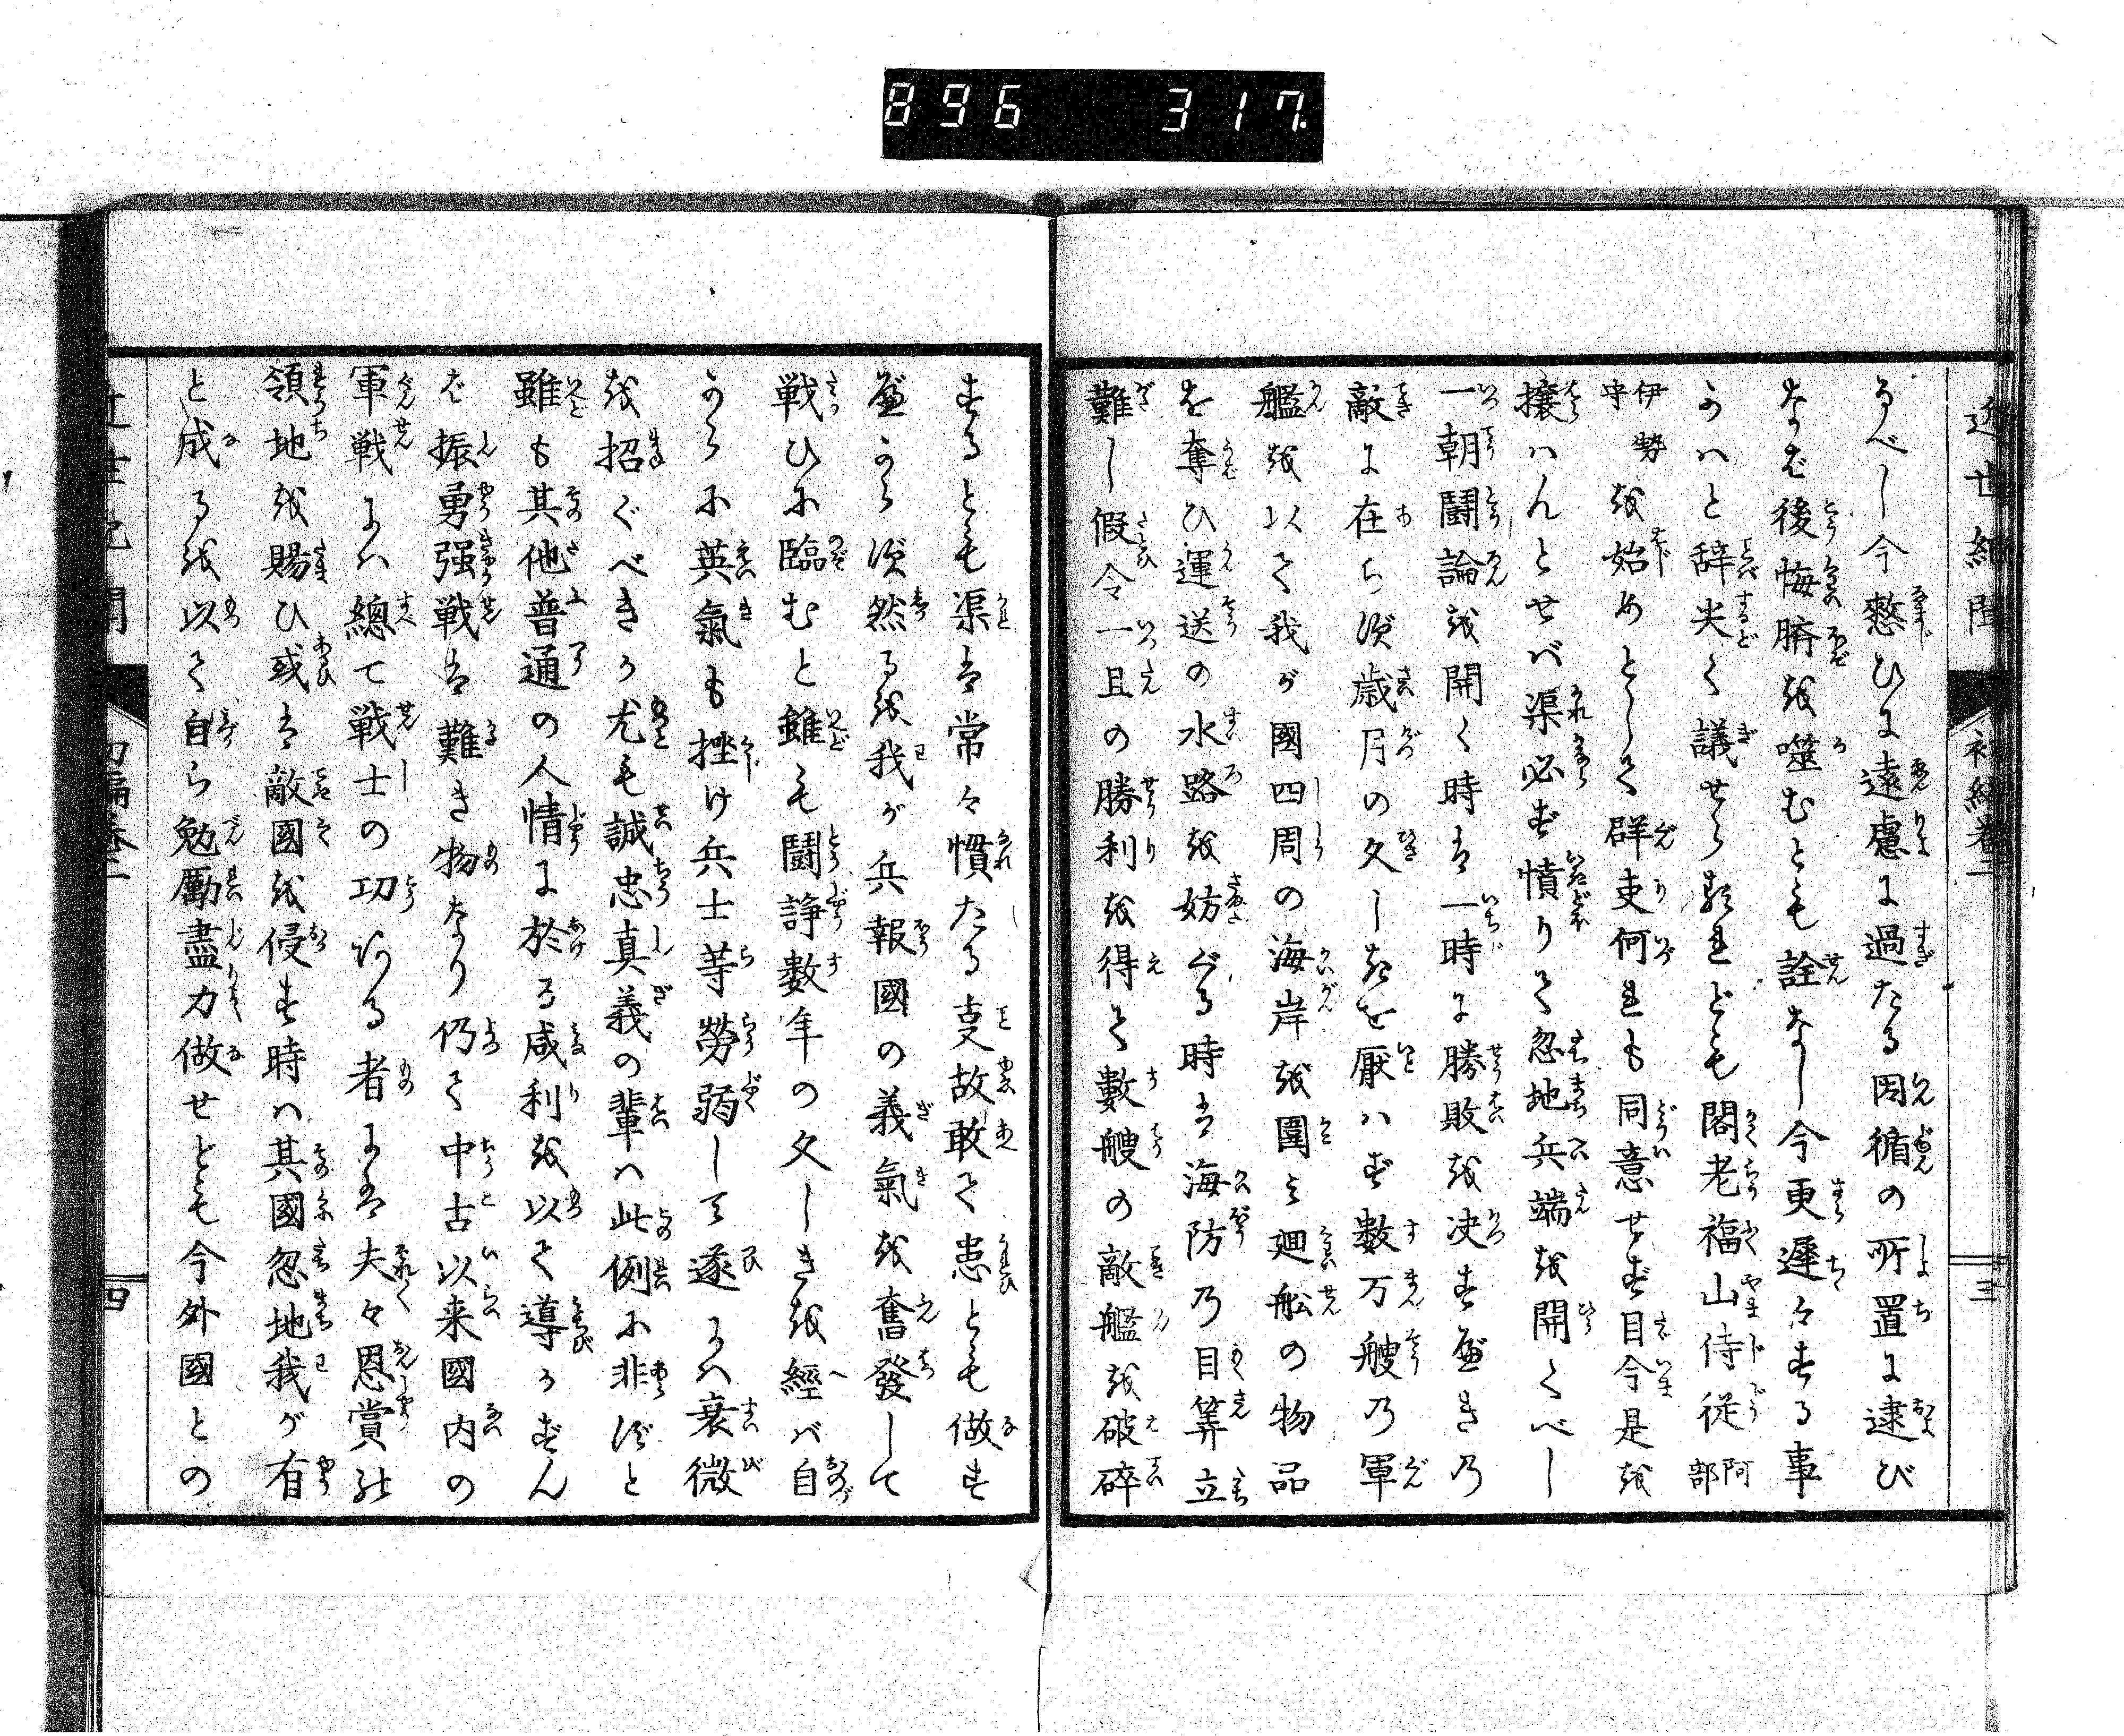 896 317.
近世紀聞 初編卷二 三
るべし今憖ひに遠慮に過たる因循の所置に逮び
なバ後悔臍を噬むとも詮なし今更遅々する事
かハと辞尖く議せられども閣老福山侍従阿部
伊勢守を始めとして群吏何れも同意せず目今是を
攘ハんとせバ渠必ず憤りて忽地兵端を開くべし
一朝闘論を開く時は一時に勝敗を决すべきの
敵に在らず歳月の久しきを厭ハず数万艘の軍
艦を以て我が國四周の海岸を圍み廻舩の物品
を奪ひ運送の水路を妨ぐる時は海防の目筭立
難し假令一旦の勝利を得て數艘の敵艦を破碎
するとも渠は常々慣たる支故敢て患とも做す
べからず然るを我が兵報國の義氣を奮發して
戦ひに臨むと雖も闘諍数年の久しきを經バ自
からに英氣も挫け兵士等勞弱して遂にハ衰微
を招ぐべきか尤も誠忠真義の輩ハ此例に非ずと
雖も其他普通の人情に於る咸利を以て導かずん
ば振勇强戦は難き物なり仍て中古以来國内の
軍戦にハ總て戦士の功ある者にハ夫々恩賞の
領地を賜ひ或は敵國を侵す時ハ其國忽地我が有
と成るを以て自ら勉勵盡力做せども今外國との
四